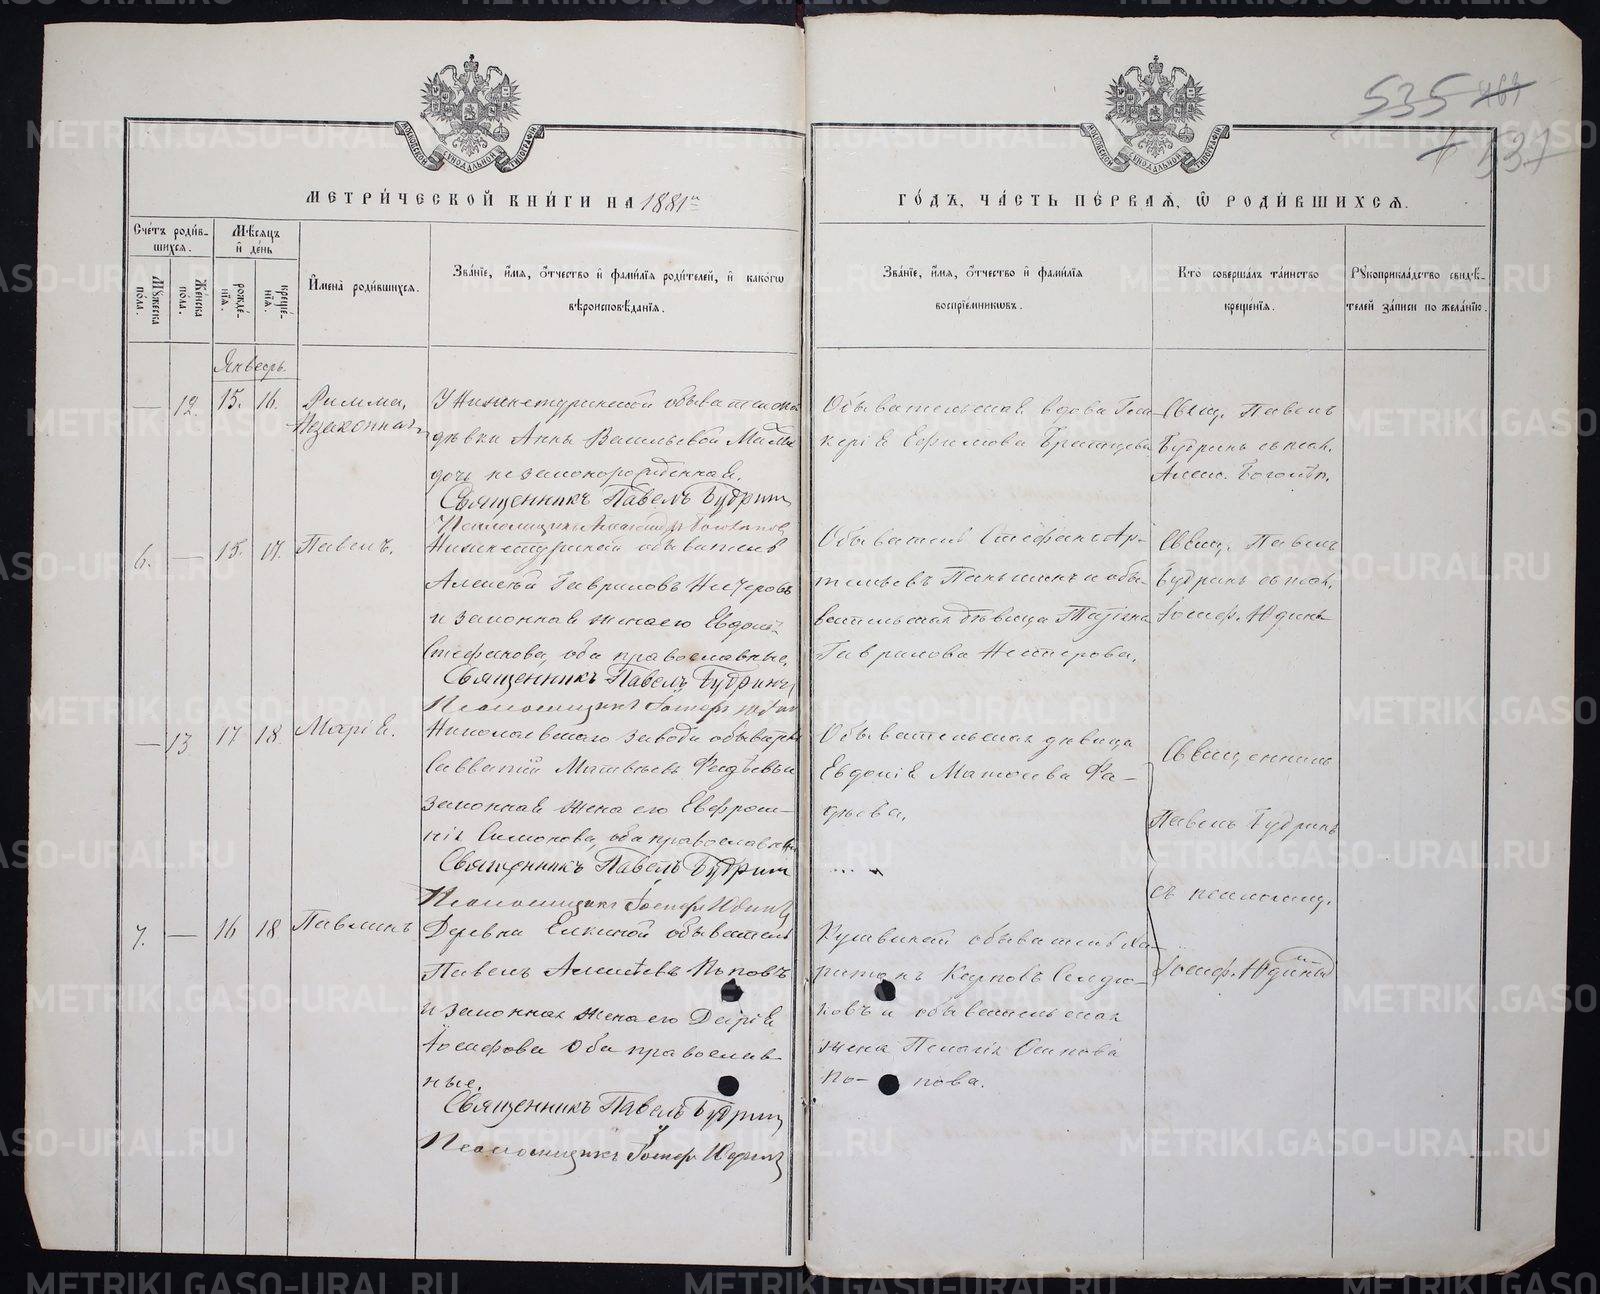 МЕТРИ́ЧЕСКОЙ КНИ́ГИ НА 1881й
ГО́ДЪ, ЧА́СТЬ ПЕ́РВАЯ, Ѽ РОДИ́ВШИХСЯ.
535
537
Сче́тъ роди́в-
шихся.
Му́жеска
по́ла.
Же́нска
по́ла.
Мѣ́сяцъ
и҆ де́нь
рожде́-
нїя.
креще́-
нїя.
И҆мена̀ роди́вшихся.
Зва́нїе, и҆́мя, ѻ҆́тчество и҆ фами́лїя роди́телей, и҆ како́гѡ
вѣроисповѣ́данїя.
Зва́нїе, и҆́мя, ѻ҆́тчество и҆ фами́лїя
воспрїе́мникѡвъ.
Кто̀ соверша́лъ та́инство
креще́нїя.
Рꙋкоприкла́дство свидѣ́-
телей за́писи по жела́нїю.
Январь.
— 12. 15. 16.
Римма,
Незаконная
У Нижнетуринской обывательской
дѣвки Анны Васильевой
дочь незаконорожденная.
Священникъ Павелъ Будринъ
Псаломщикъ Александръ
Обывательская вдова Гли-
керія Ефимова
Свящ. Павелъ
Будринъ съ псал.
Алекс.
6. — 15. 17.
Павелъ.
Нижнетуринскій обыватель
Алексѣй Гавриловъ Нестеровъ
и законная жена его Евдокія
Стефанова, оба православные.
Священникъ Павелъ Будринъ
Псаломщикъ Іосифъ Юдинъ
Обыватель Стефанъ Ар-
темьевъ Паньшинъ и обы-
вательская дѣвица Татіана
Гаврилова Нестерова.
Свящ. Павелъ
Будринъ съ псал.
Іосиф. Юдинъ
— 13. 17 18.
Марія.
Николаевскаго завода обыватель
Савватій Матвѣевъ
законная жена его Евфроси-
нія Симонова, оба православные
Священникъ Павелъ Будринъ
Псаломщикъ Іосифъ Юдинъ
Обывательская дѣвица
Евдокія Матвѣева Фа-
дѣева.
Священникъ
Павелъ Будринъ
съ псаломщ.
Іосиф. Юдинъ
7. — 16 18
Павлинъ
Деревни Елкиной обыватель
Павелъ Алексѣевъ Поповъ
и законная жена его Дарія
Іосифова оба православ-
ные.
Священникъ Павелъ Будринъ
Псаломщикъ Іосифъ Юдинъ
Кушвинскій обыватель Ха-
ритонъ Карповъ Сердю-
ковъ и обывательская
жена Пелагія Осипова
По- пова.
METRIKI.GASO-URAL.RU